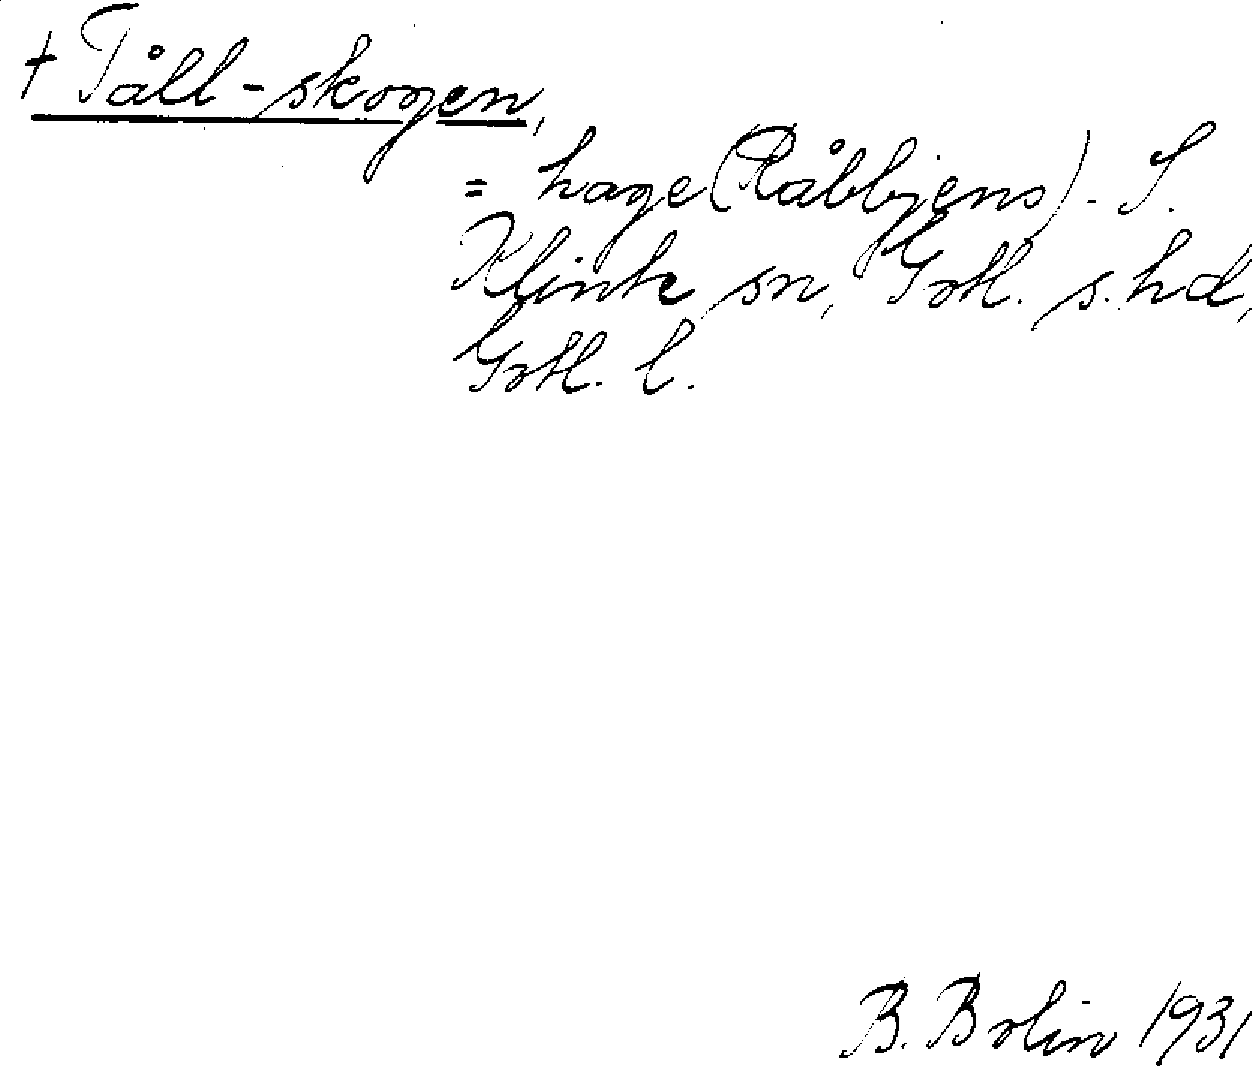 † Tåll-skogen,
= hage (Råbbjens). S.
Klinte sn, Gotl. s. hd,
Gotl. l.
B. Bolin 1931